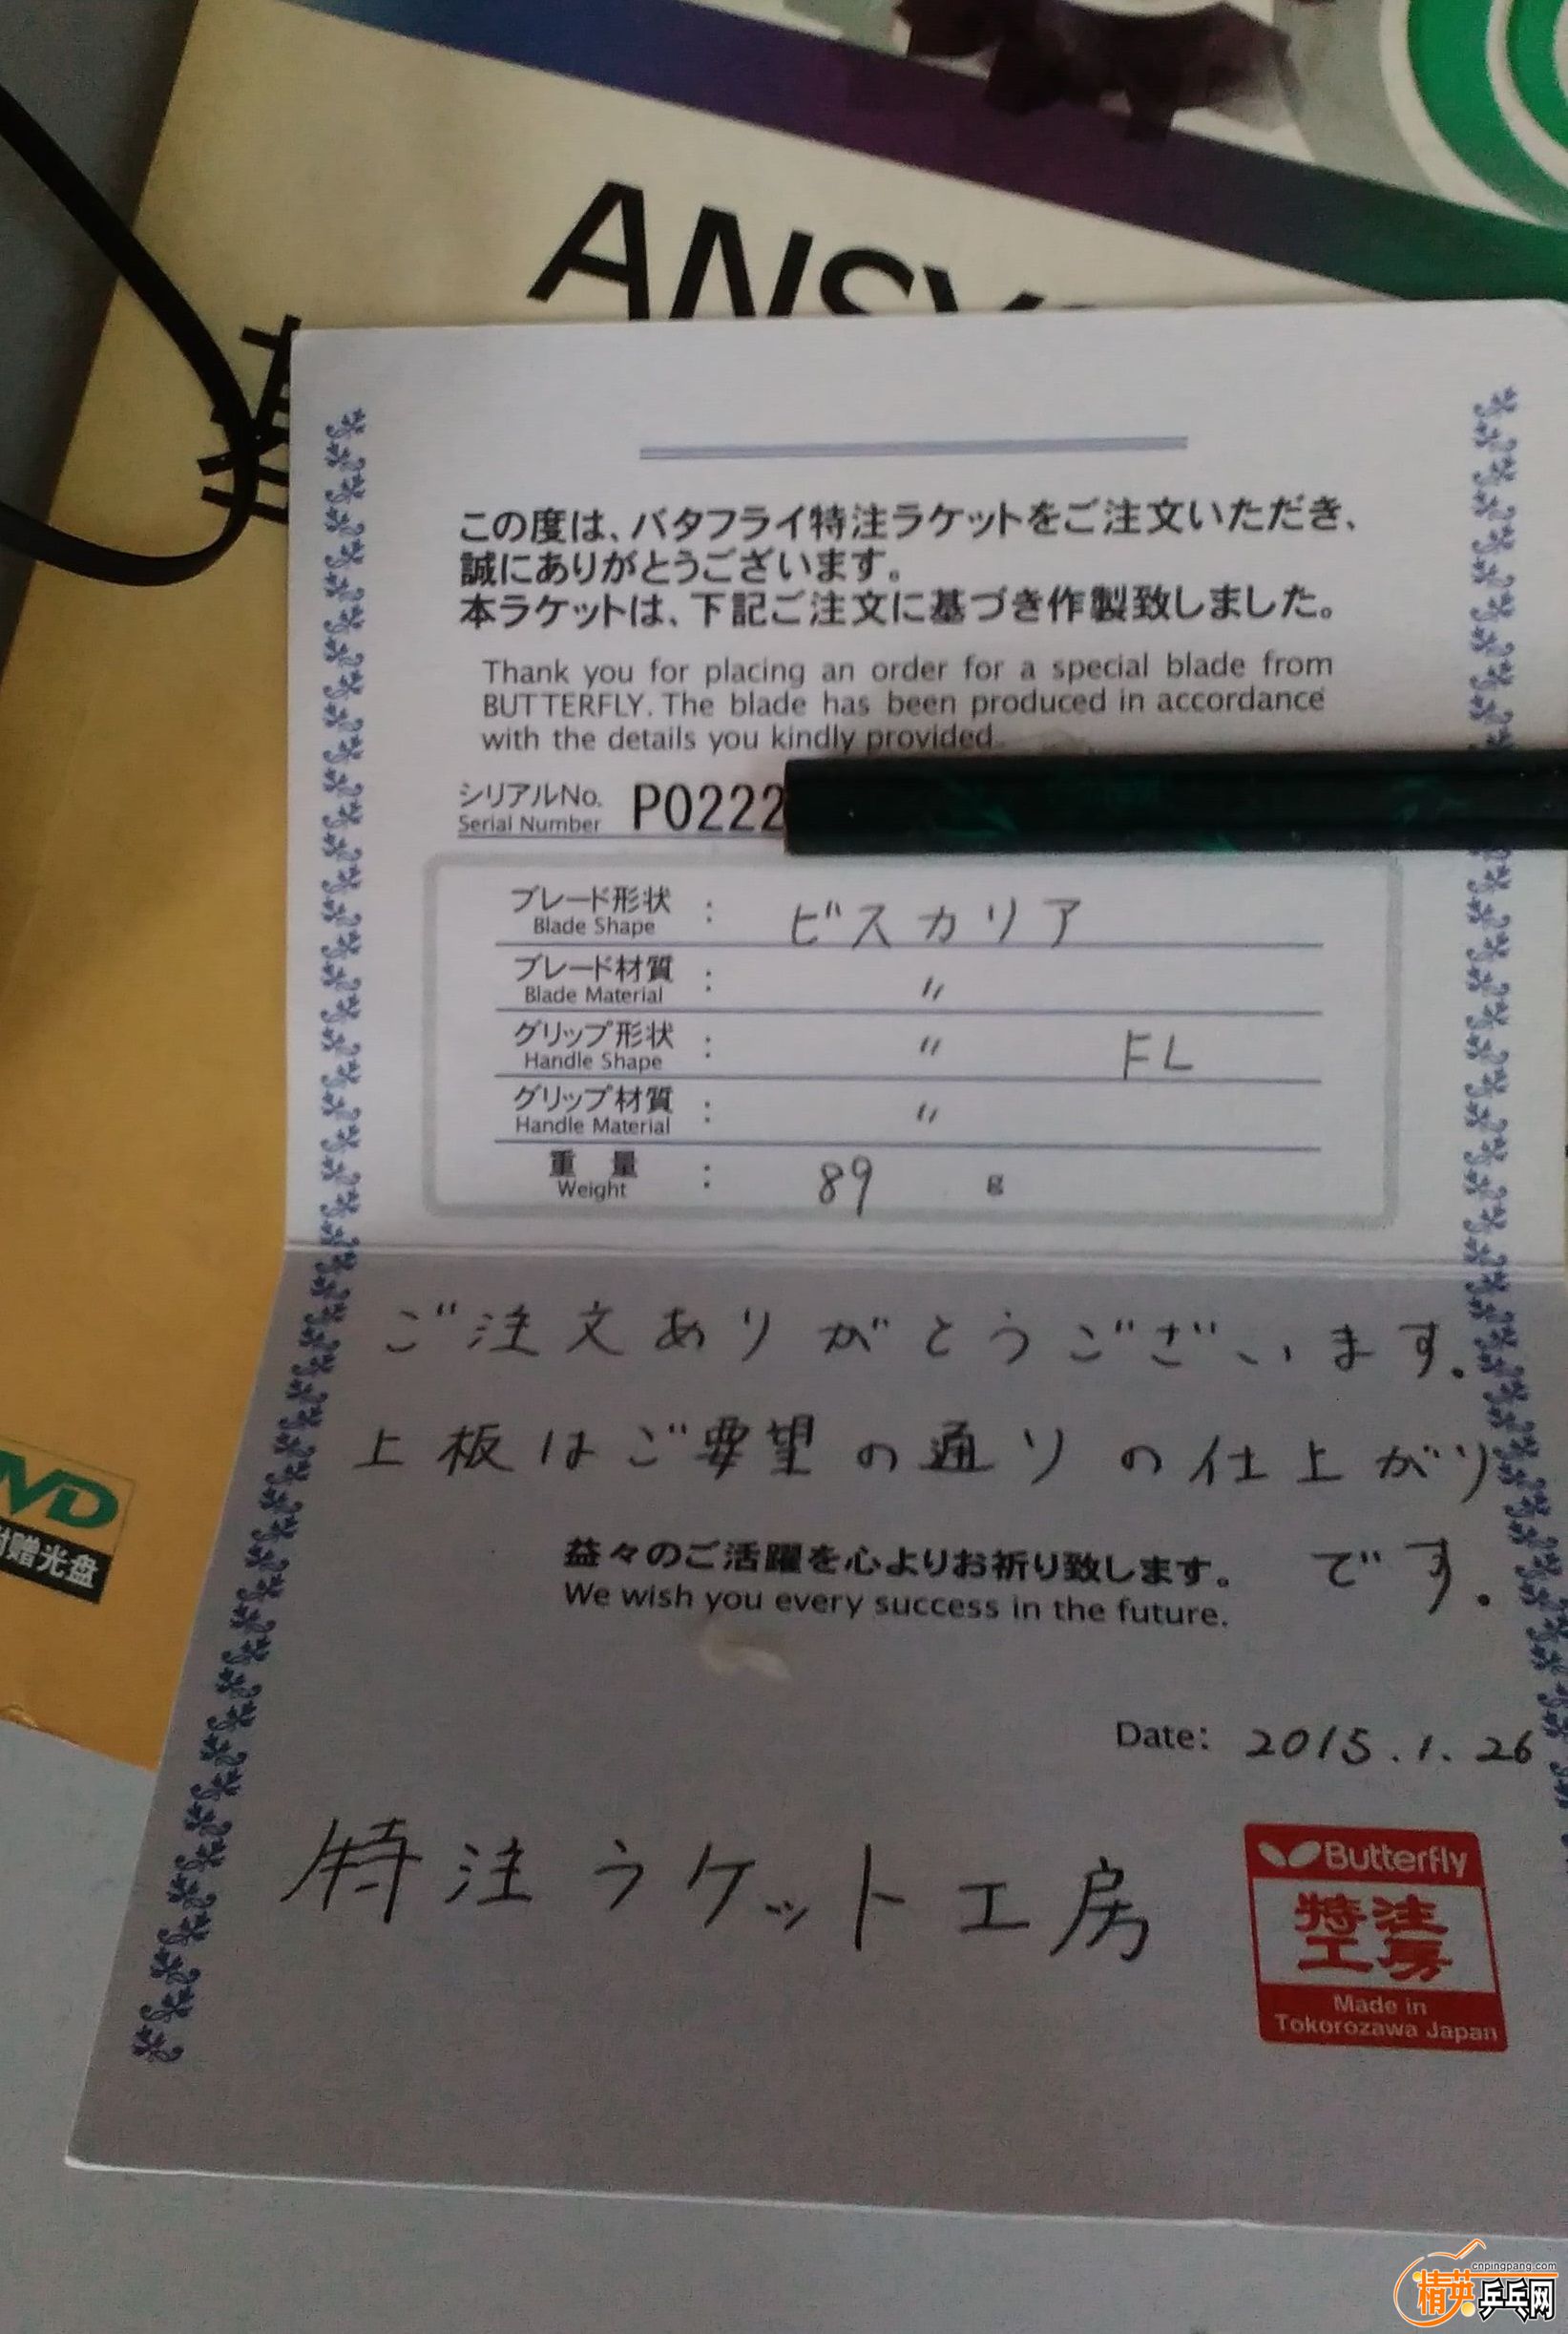 この度は、バタフライ特注ラケットをご注文いただき、
誠にありがとうございます。
本ラケットは、下記ご注文に基づき作製致しました。
Thank you for placing an order for a special blade from
BUTTERFLY. The blade has been produced in accordance
with the details you kindly provided.
シリアルNo. P0222
Serial Number
ブレード形状 : ビスカリア
Blade Shape
ブレード材質 : 〃
Blade Material
グリップ形状 : 〃 FL
Handle Shape
グリップ材質 : 〃
Handle Material
重量 : 89 g
Weight
ご注文ありがとうございます.
上板はご要望の通りの仕上がり
です.
益々のご活躍を心よりお祈り致します。
We wish you every success in the future.
Date: 2015.1.26
特注ラケット工房
Butterfly
特注
工房
Made in
Tokorozawa Japan
附赠光盘
cnpingpang.com
精英乒乓网